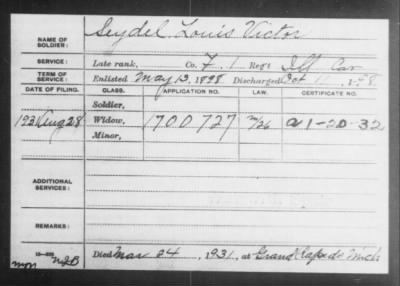 NAME OF SOLDIER: Seydel Louis Victor
SERVICE: Late rank, Co. F. 1 Reg't Ill Cav
TERM OF SERVICE: Enlisted May 13, 1898 Discharged Oct 11, 1898
DATE OF FILING. CLASS. APPLICATION NO. LAW. CERTIFICATE NO.
Soldier,
1931 Aug 28 Widow, 1700727 a 1-20-32
Minor,
ADDITIONAL SERVICES:
REMARKS:
Died Mar 24, 1931, at Grand Rapids Mich